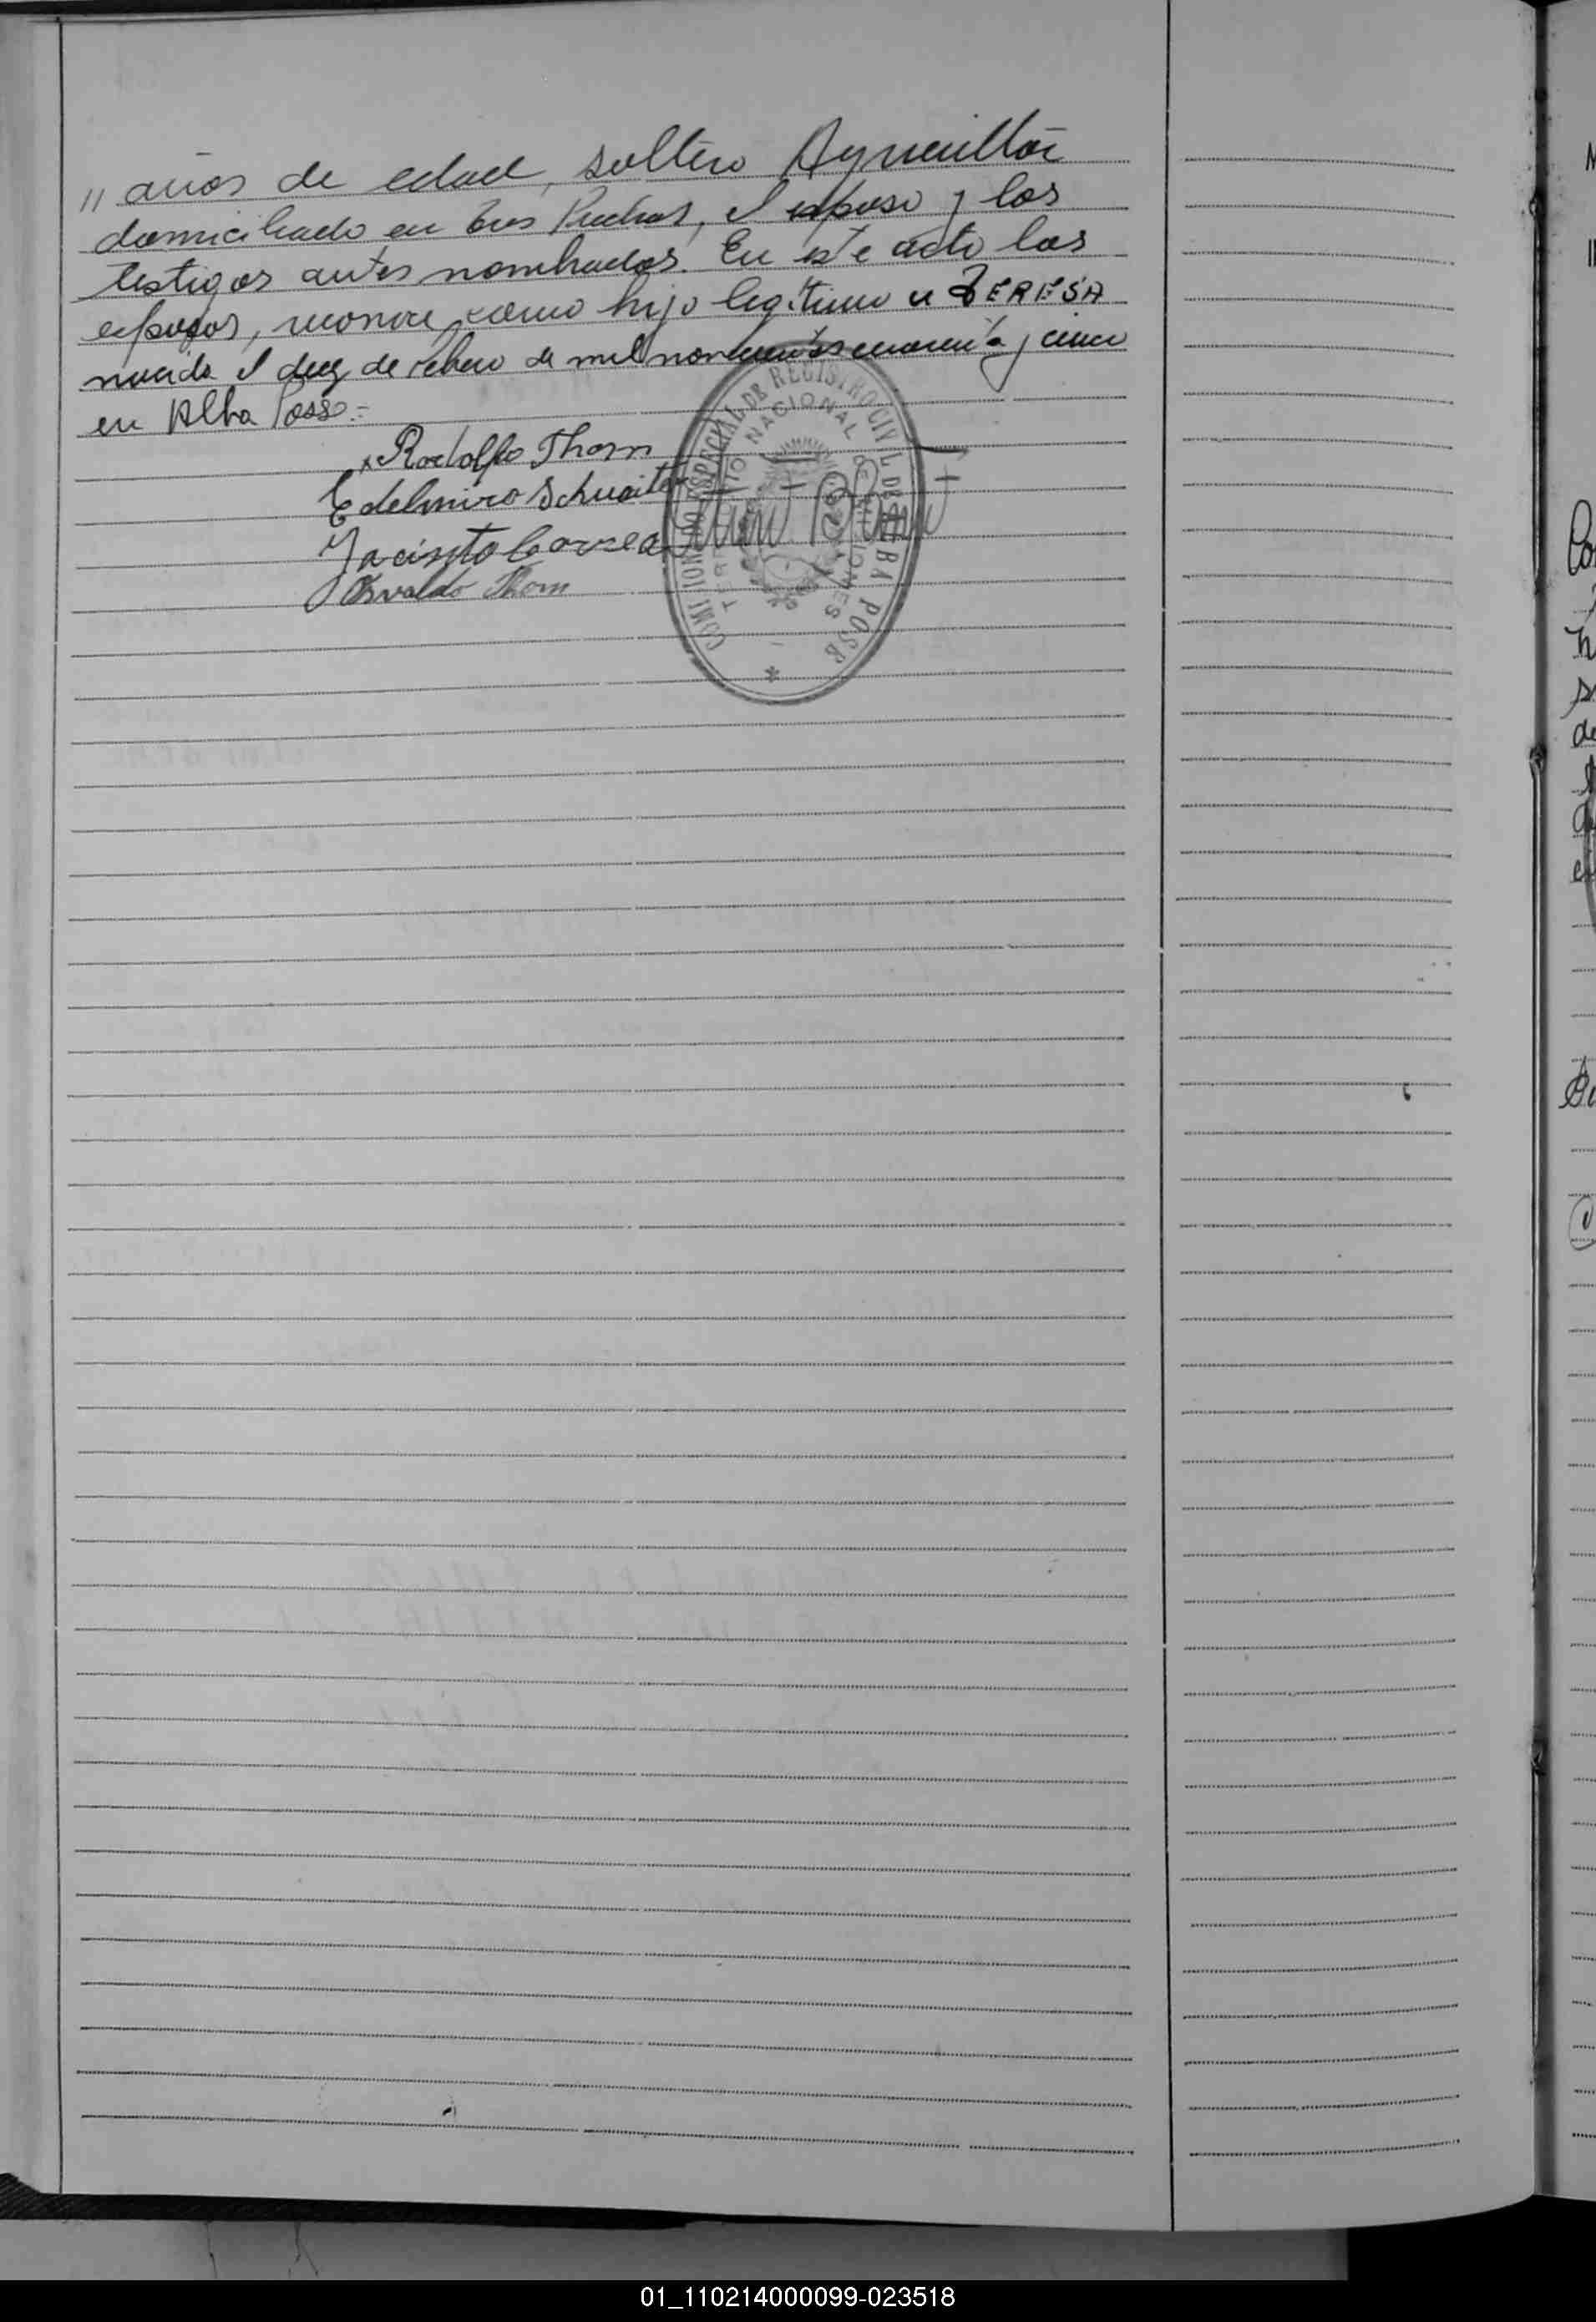 " años de edad, soltero Agricultor
domiciliado en tres Piedras, el esposo y los
testigos antes nombrados. En este acto los
esposos, reconoce como hijo legitimo a TERESA
nacida el diez de febrero de mil novecientos cuarenta y cinco
en Alba Posse.-
Rodolfo Thom
Edelmiro Schuaiter
Jacinto Correa
Osvaldo Thom
COMISIONADO ESPECIAL DE REGISTRO CIVIL DE ALBA POSSE
TERRITORIO NACIONAL DE MISIONES
01_110214000099-023518